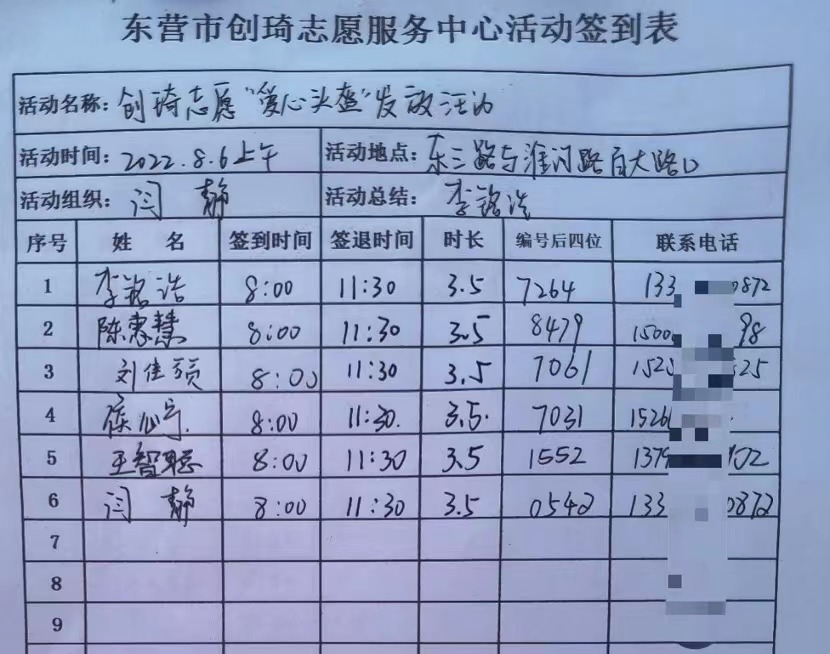 东营市创琦志愿服务中心活动签到表
活动名称: 创琦志愿"爱心头盔"发放活动
活动时间: 2022.8.6上午 活动地点: 东三路与淮河路百大路口
活动组织: 闫静 活动总结: 李铭浩
序号 姓名 签到时间 签退时间 时长 编号后四位 联系电话
1 李铭浩 8:00 11:30 3.5 7264 133 0872
2 陈惠慧 8:00 11:30 3.5 8479 1500 98
3 刘佳硕 8:00 11:30 3.5 7061 152 525
4 8:00 11:30. 3.5. 7031 1526
5 王智聪 8:00 11:30 3.5 1552 1379 702
6 闫静 8:00 11:30 3.5 0542 133 0872
7
8
9